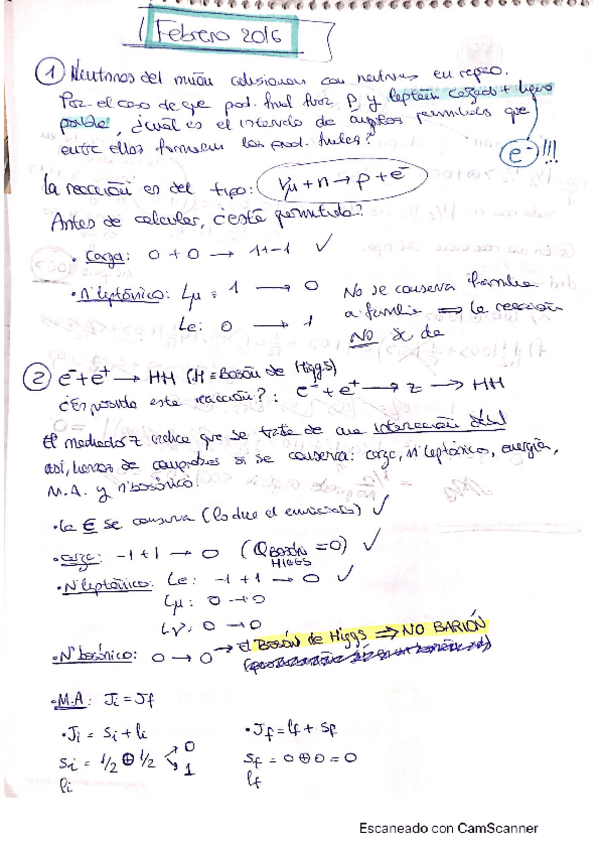 Febrero 2016
① Neutrinos del muón colisionan con neutrones en reposo.
Por el caso de que prod. final fuor. P y leptón cargado + ligero
posible, ¿cuál es el intervalo de angulos permitidos que
entre ellos formen los prod. finales?
e⁻!!!
La reacción es del tipo: νμ + n → p + e⁻
Antes de calcular, ¿está permitida?
• Carga: 0 + 0 → 1+-1 ✓
• nº leptónico: Lμ = 1 → 0 No se conserva familia
Le: 0 → 1 a familia ⟹ la reacción
NO se da
② e⁻+e⁺ → HH (H = Bosón de Higgs)
¿Es posible esta reacción?: e⁻ + e⁺ → Z → HH
El mediador Z indica que se trata de una interacción débil
así, hemos de comprobar si se conserva: carga, nº leptónico, energía,
M.A. y nº bosónico.
• La E se conserva (lo dice el enunciado) ✓
• Carga: -1+1 → 0 (Q BOSÓN HIGGS = 0) ✓
• Nº leptónico: Le: -1+1 → 0 ✓
Lμ: 0 → 0
Lν: 0 → 0
• Nº bosónico: 0 → 0 → el Bosón de Higgs ⟹ NO BARIÓN
• M.A: Ji = Jf
• Ji = Si + li • Jf = lf + Sf
Si = 1/2 ⊕ 1/2 < 0 1 Sf = 0 ⊕ 0 = 0
li lf
Escaneado con CamScanner